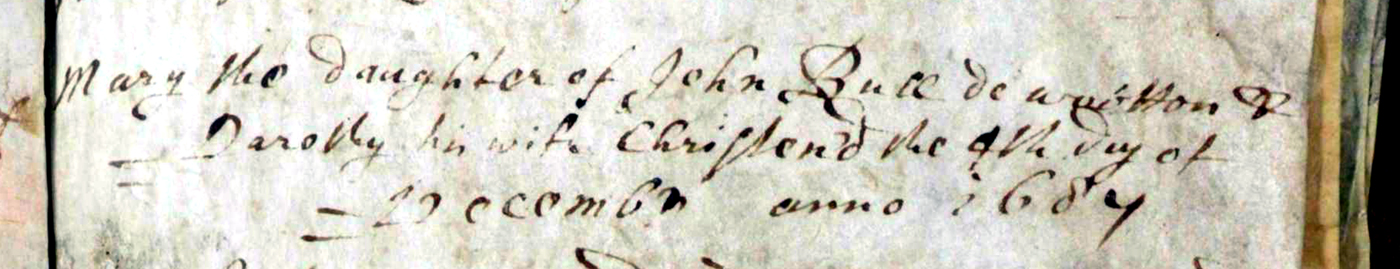 Mary the daughter of John Bull de wootton &
Darothy his wife Christend the 4th day of
Decembr anno 1687